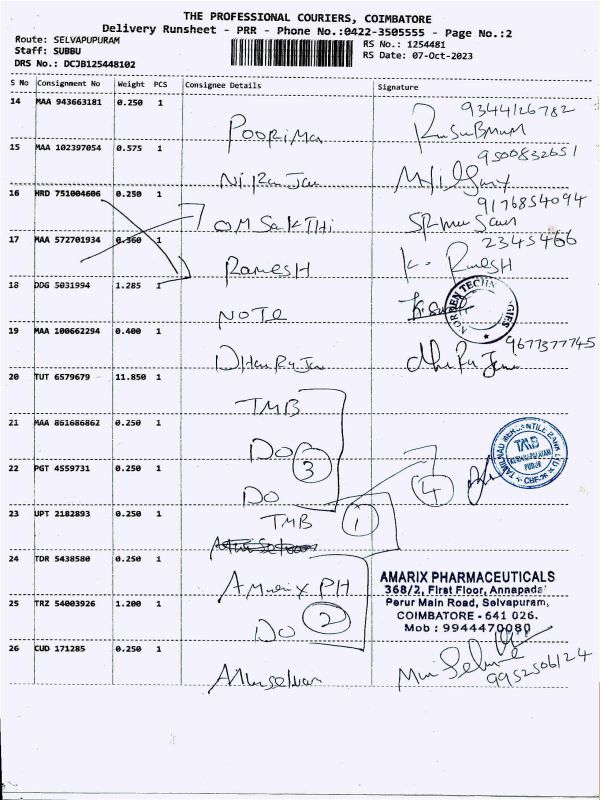 THE PROFESSIONAL COURIERS, COIMBATORE
Delivery Runsheet - PRR - Phone No.:0422-3505555 - Page No.:2
Route: SELVAPUPURAM
Staff: SUBBU
DRS No.: DCJB125448102
RS No.: 1254481
RS Date: 07-Oct-2023
S No Consignment No Weight PCS Consignee Details Signature
14 MAA 943663181 0.250 1
POORIMA 9344126782
15 MAA 102397054 0.575 1
Niranjan 9500832651
16 HRD 751004606 0.250 1
OM SaKTHi 9176854094
17 MAA 572701934 0.360 1
RAMESH 2345466
K. RamESH
18 DDG 5031994 1.285 1
NOTE
19 MAA 100662294 0.400 1
DHanRaJan 9677377745
20 TUT 6579679 11.850 1
TMB
21 MAA 861686862 0.250 1
DO 3
22 PGT 4559731 0.250 1
DO 4
TAMILNAD MERCANTILE BANK LTD
TMB
23 UPT 2182893 0.250 1
TMB 1
24 TDR 5438580 0.250 1
Amarix PH
25 TRZ 54003926 1.200 1
DO 2
AMARIX PHARMACEUTICALS
368/2, First Floor, Annapada
Perur Main Road, Selvapuram,
COIMBATORE - 641 026.
Mob : 9944470080
26 CUD 171285 0.250 1
9952506124